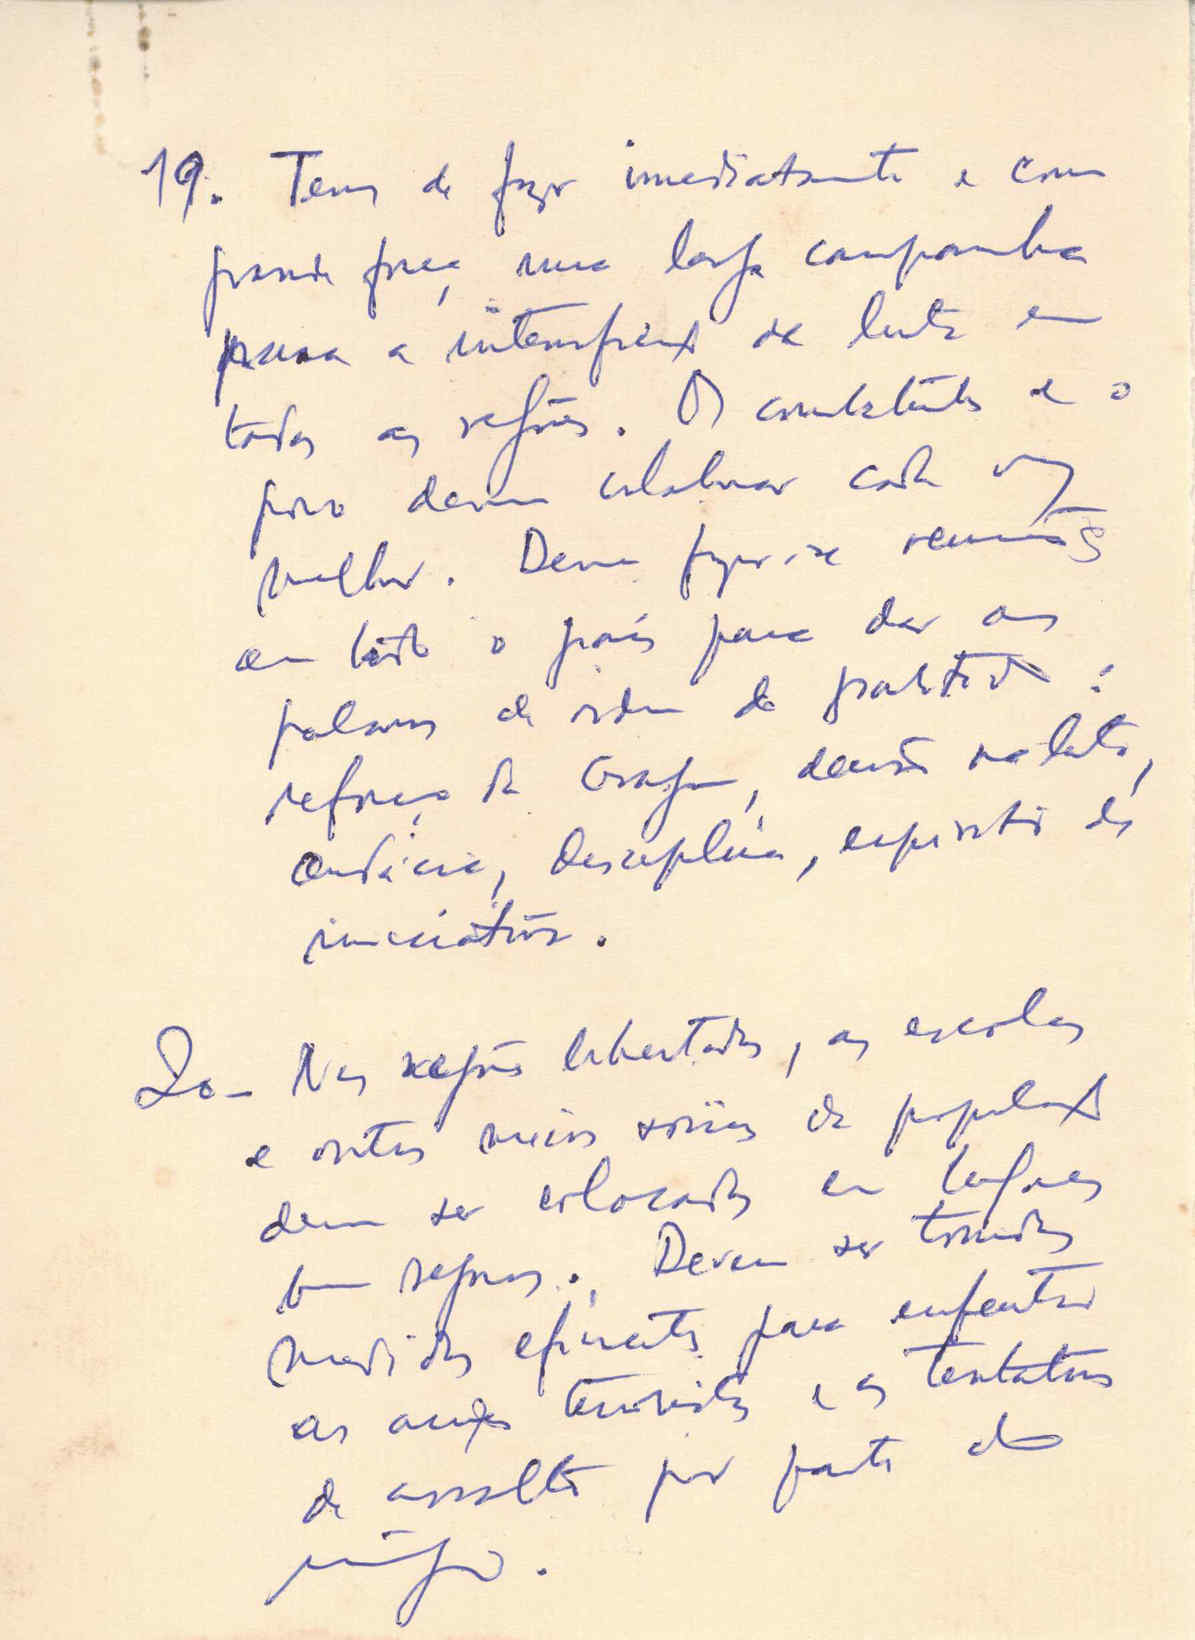 19. Temos de fazer imediatamente e com
grande força, uma larga campanha
para a intensificação da luta em
todas as regiões. Os combatentes e o
povo devem colaborar cada vez
melhor. Devem fazer-se reuniões
em todo o país para dar as
palavras de ordem do partido:
reforço da coragem, decisão na luta,
audácia, disciplina, espírito de
iniciativa.
20- Nas regiões libertadas, as escolas
e outros meios sociais da população
devem ser colocados em lugares
bem seguros. Devem ser tomadas
medidas eficientes para enfrentar
as acções terroristas e as tentativas
de assalto por parte do
inimigo.